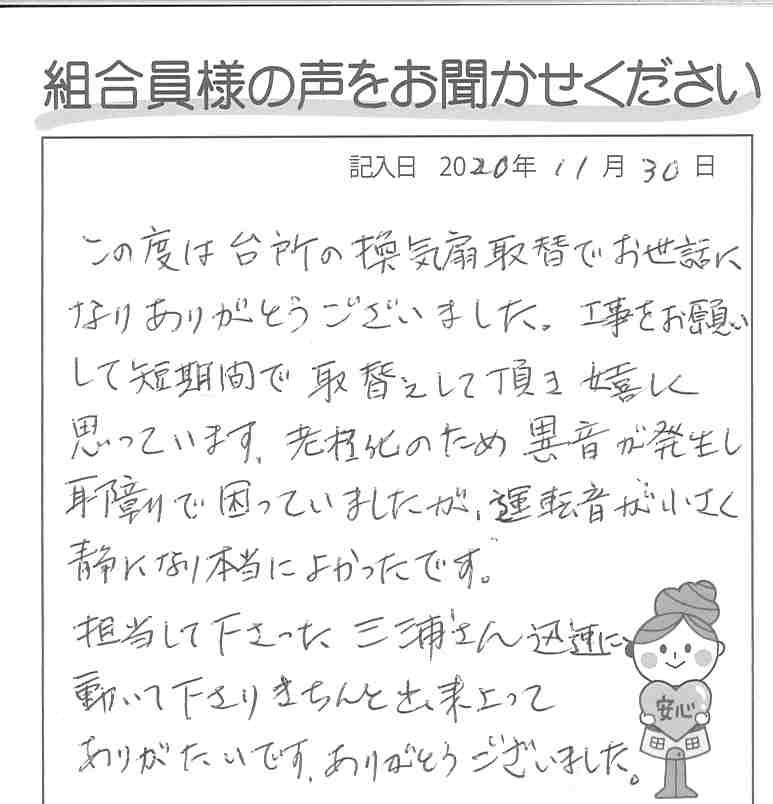 組合員様の声をお聞かせください
記入日 2020年 11月 30日
この度は台所の換気扇取替でお世話に
なりありがとうございました。工事をお願い
して短期間で取替えして頂き嬉しく
思っています。老朽化のため異音が発生し
耳障りで困っていましたが、運転音が小さく
静になり本当によかったです。
担当して下さった三浦さん迅速に
動いて下さりきちんと出来上って
ありがたいです。ありがとうございました。
安心